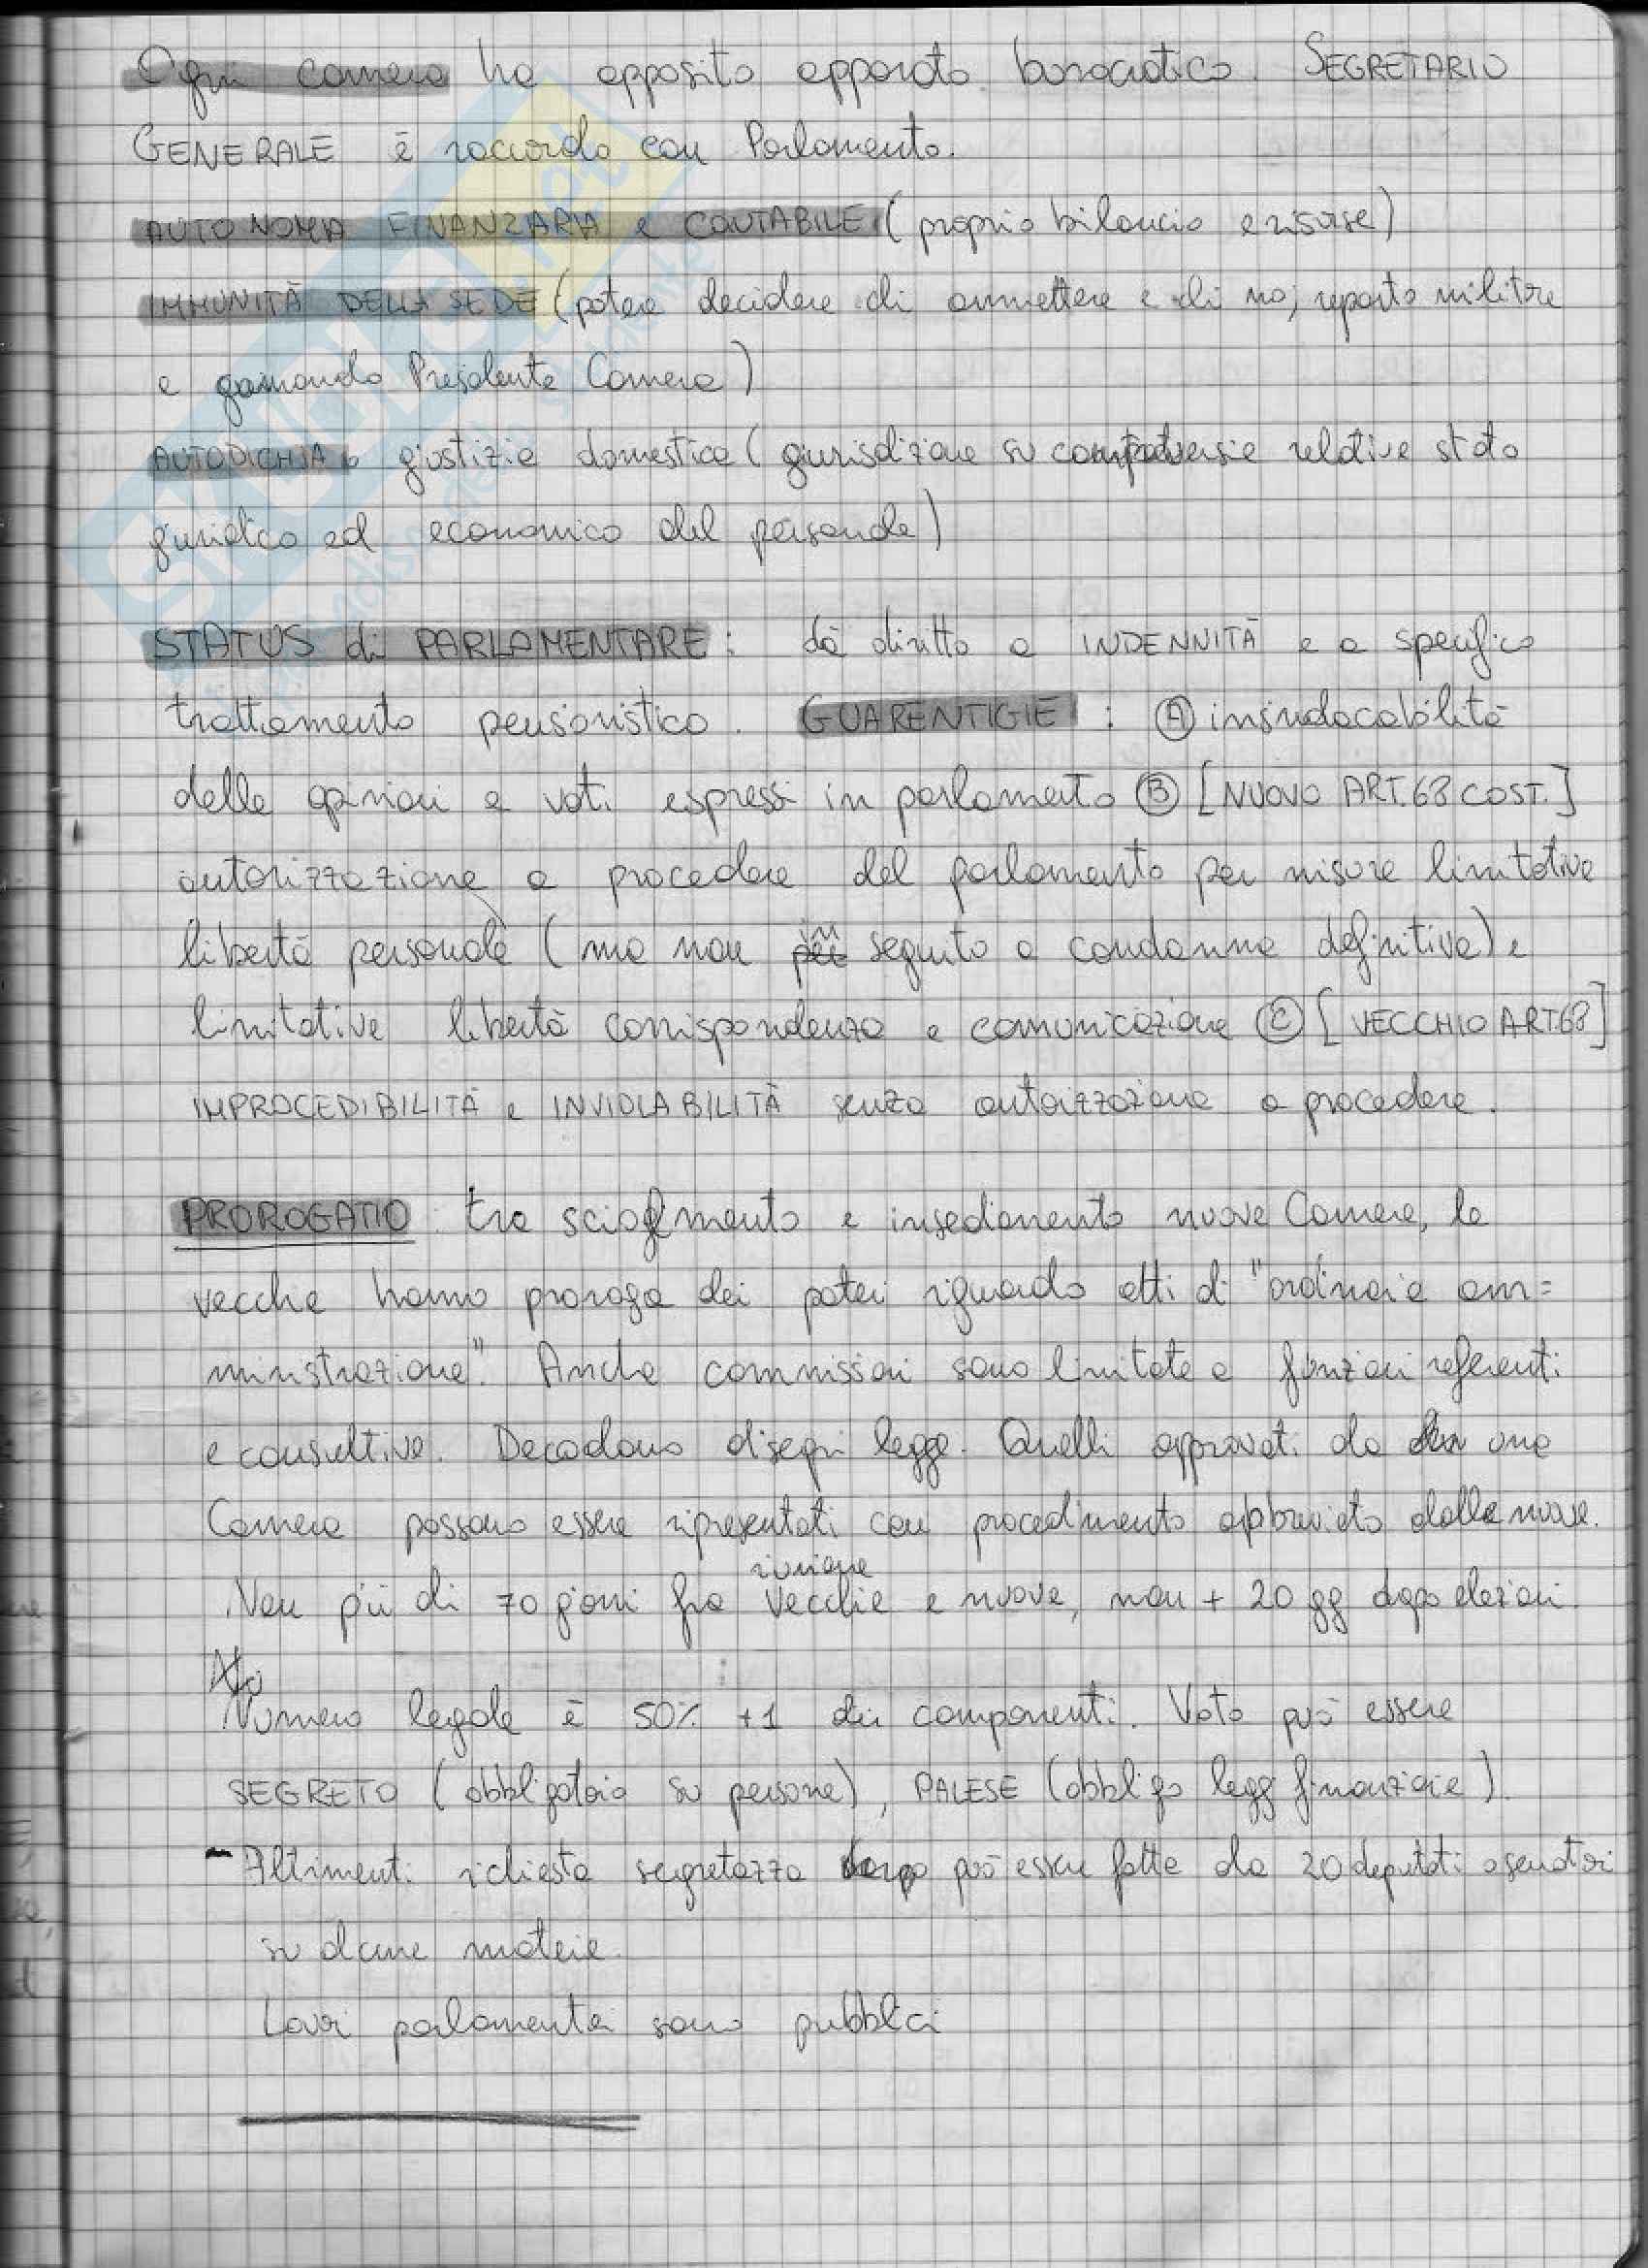 Ogni camera ha apposito apparato burocratico. SEGRETARIO
GENERALE è raccordo con Parlamento.
AUTONOMIA FINANZIARIA e CONTABILE (proprio bilancio e risorse)
IMMUNITÀ DELLA SEDE (potere decidere di ammettere e di no; reparto militare
e Presidente Camera)
AUTODICHIA o giustizia domestica (giurisdizione su controversie relative stato
giuridico ed economico del personale)
STATUS di PARLAMENTARE: dà diritto a INDENNITÀ e a specifico
trattamento pensionistico. GUARENTIGIE: Ⓐ insindacabilità
delle opinioni e voti espressi in parlamento Ⓑ [NUOVO ART. 68 COST.]
autorizzazione a procedere del parlamento per misure limitative
libertà personale (ma non in seguito a condanna definitiva) e
limitative libertà corrispondenza e comunicazione Ⓒ [VECCHIO ART. 68]
IMPROCEDIBILITÀ e INVIOLABILITÀ senza autorizzazione a procedere.
PROROGATIO: tra scioglimento e insediamento nuove Camere, le
vecchie hanno proroga dei poteri riguardo atti di "ordinaria am=
ministrazione". Anche commissioni sono limitate a funzioni referenti
e consultive. Decadono disegni legge. Quelli approvati da una
Camera possono essere ripresentati con procedimento abbreviato dalle nuove.
riunione
Non più di 70 giorni fra vecchie e nuove, non + 20 gg dopo elezioni.
Numero legale è 50% +1 dei componenti. Voto può essere
SEGRETO (obbligatorio su persone), PALESE (obbligo leggi finanziarie).
- Altrimenti richiesta segretezza può essere fatta da 20 deputati o senatori
su alcune materie.
Lavori parlamentari sono pubblici